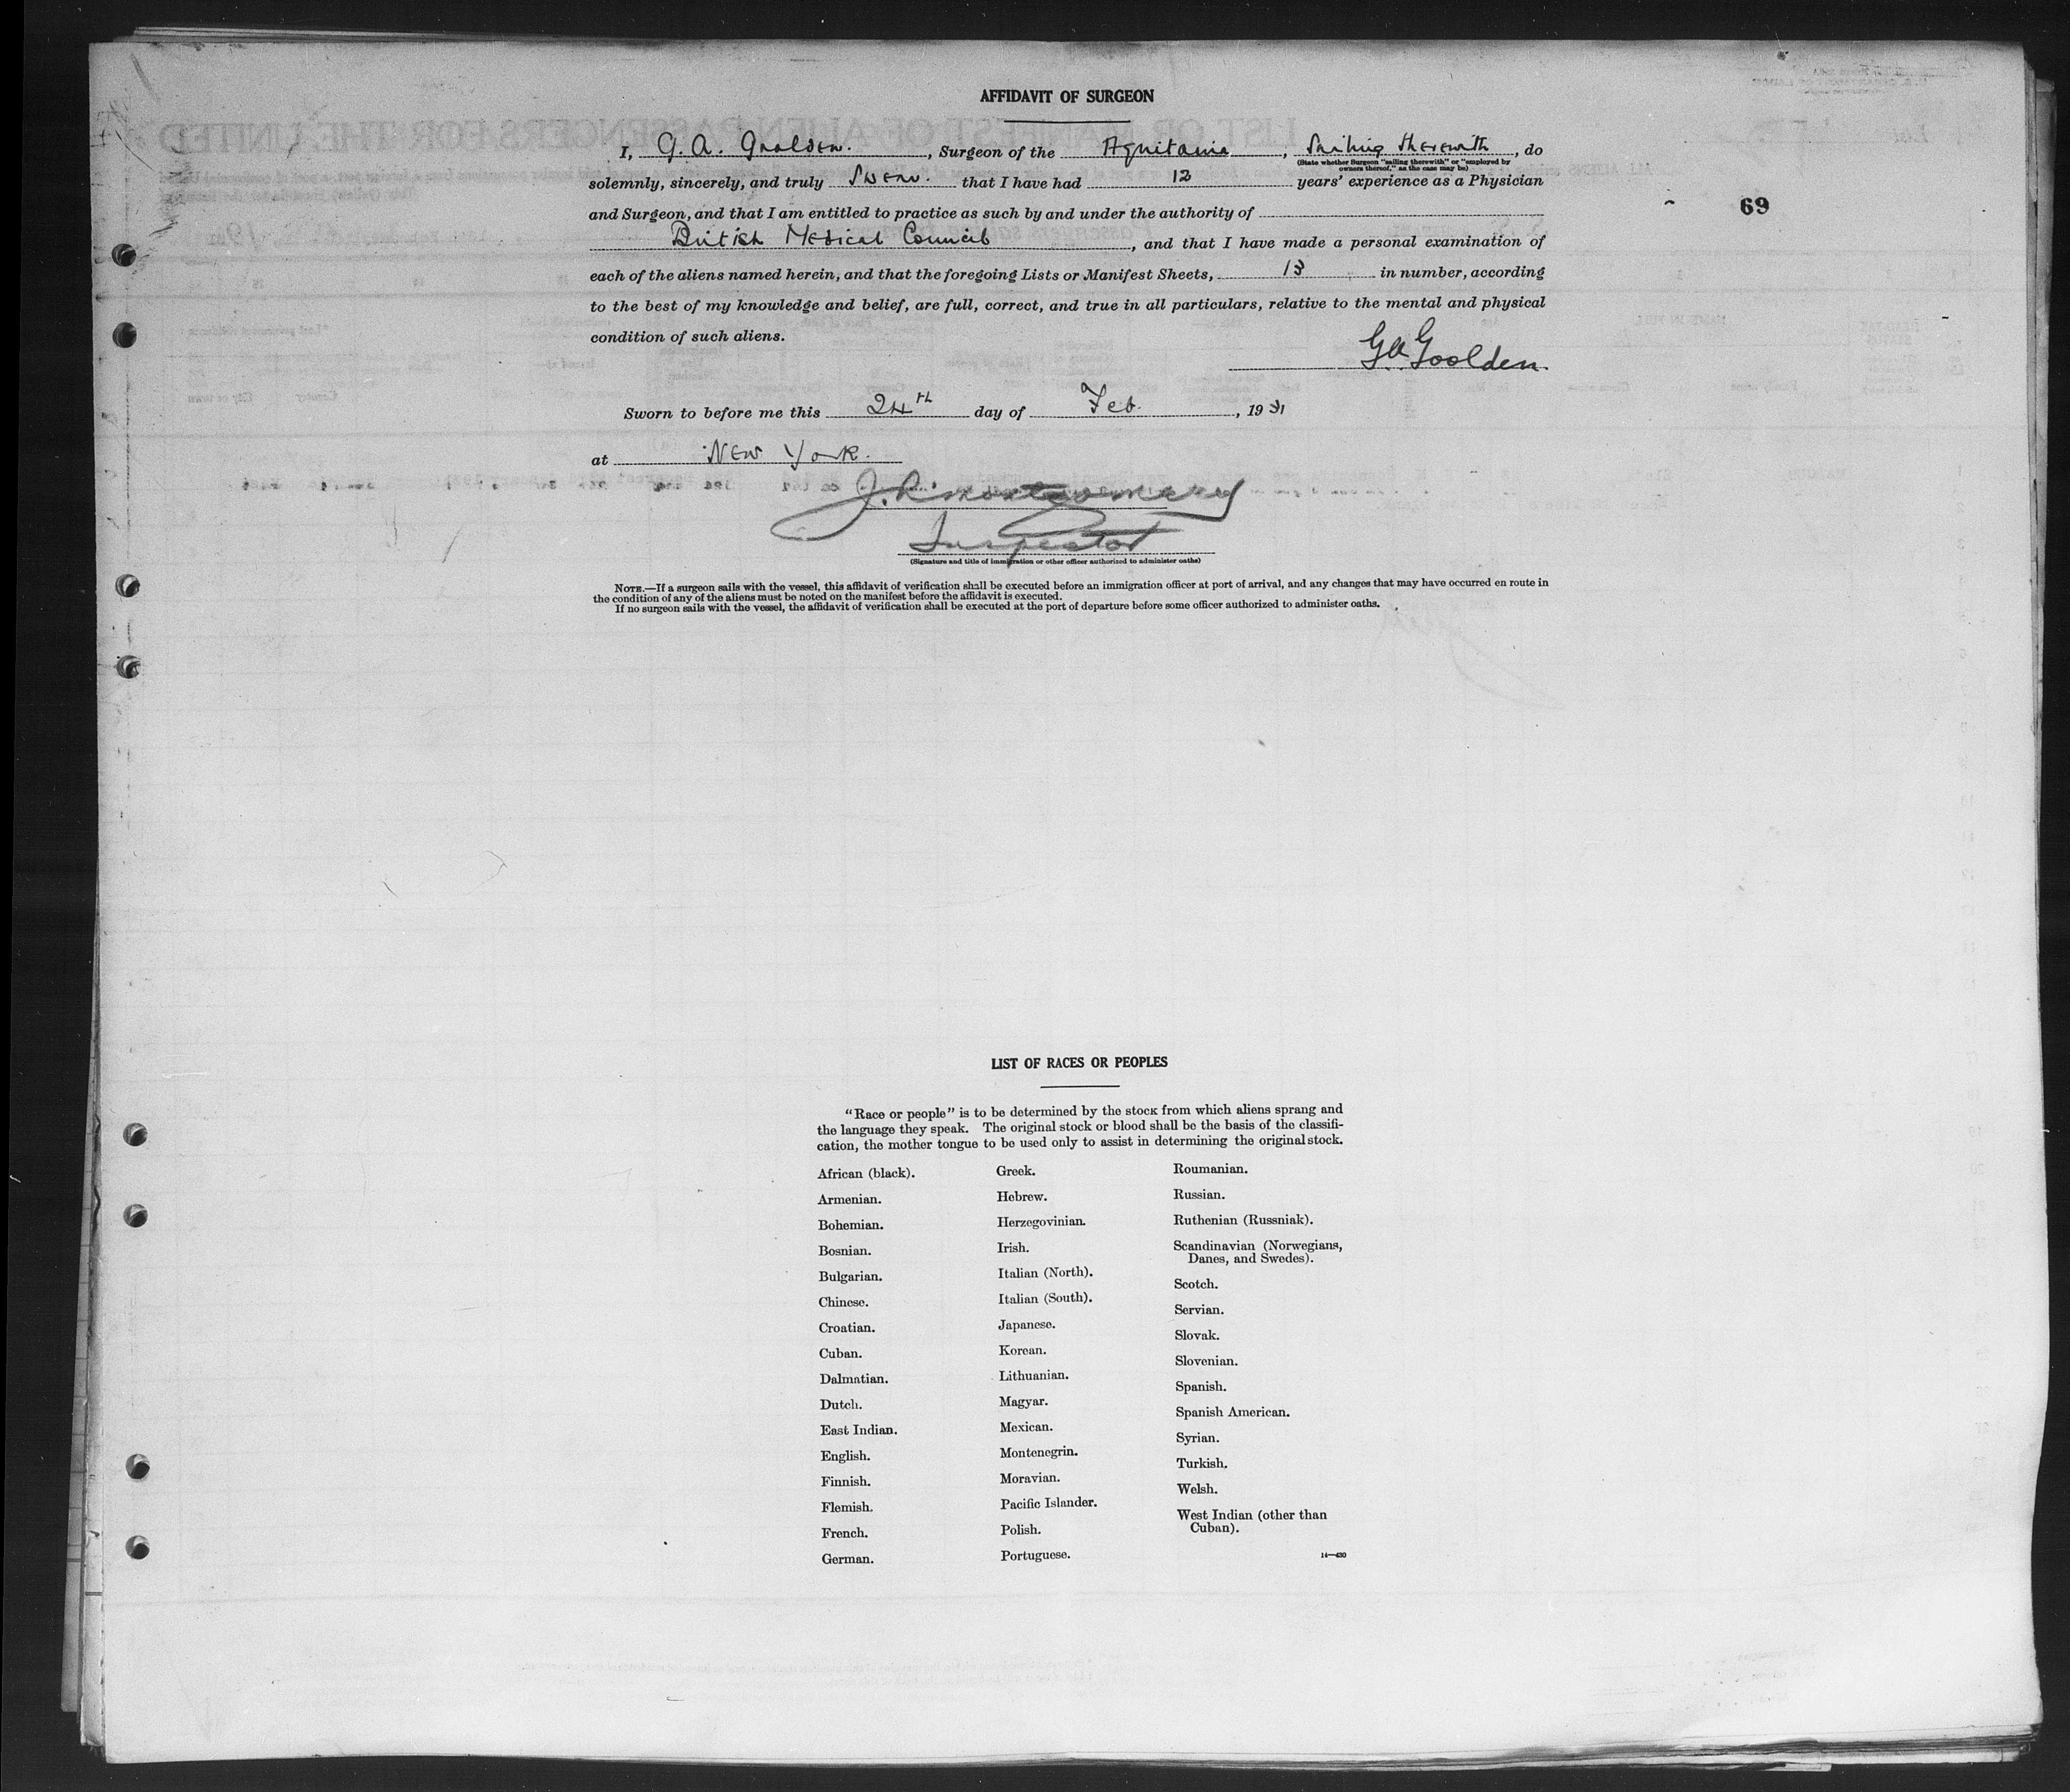 AFFIDAVIT OF SURGEON
I, G. A. Goolden., Surgeon of the Aquitania, Sailing therewith, do
(State whether Surgeon "sailing therewith" or "employed by
owners thereof," as the case may be)
solemnly, sincerely, and truly swear. that I have had 12 years' experience as a Physician
69
and Surgeon, and that I am entitled to practice as such by and under the authority of
British Medical Council, and that I have made a personal examination of
each of the aliens named herein, and that the foregoing Lists or Manifest Sheets, 13 in number, according
to the best of my knowledge and belief, are full, correct, and true in all particulars, relative to the mental and physical
condition of such aliens.
G A Goolden.
Sworn to before me this 24th day of Feb., 1931
at New York.
J. R. Montgomery
Inspector
(Signature and title of immigration or other officer authorized to administer oaths)
NOTE.—If a surgeon sails with the vessel, this affidavit of verification shall be executed before an immigration officer at port of arrival, and any changes that may have occurred en route in
the condition of any of the aliens must be noted on the manifest before the affidavit is executed.
If no surgeon sails with the vessel, the affidavit of verification shall be executed at the port of departure before some officer authorized to administer oaths.
LIST OF RACES OR PEOPLES
"Race or people" is to be determined by the stock from which aliens sprang and
the language they speak. The original stock or blood shall be the basis of the classifi-
cation, the mother tongue to be used only to assist in determining the original stock.
African (black).
Armenian.
Bohemian.
Bosnian.
Bulgarian.
Chinese.
Croatian.
Cuban.
Dalmatian.
Dutch.
East Indian.
English.
Finnish.
Flemish.
French.
German.
Greek.
Hebrew.
Herzegovinian.
Irish.
Italian (North).
Italian (South).
Japanese.
Korean.
Lithuanian.
Magyar.
Mexican.
Montenegrin.
Moravian.
Pacific Islander.
Polish.
Portuguese.
Roumanian.
Russian.
Ruthenian (Russniak).
Scandinavian (Norwegians,
Danes, and Swedes).
Scotch.
Servian.
Slovak.
Slovenian.
Spanish.
Spanish American.
Syrian.
Turkish.
Welsh.
West Indian (other than
Cuban).
14—430